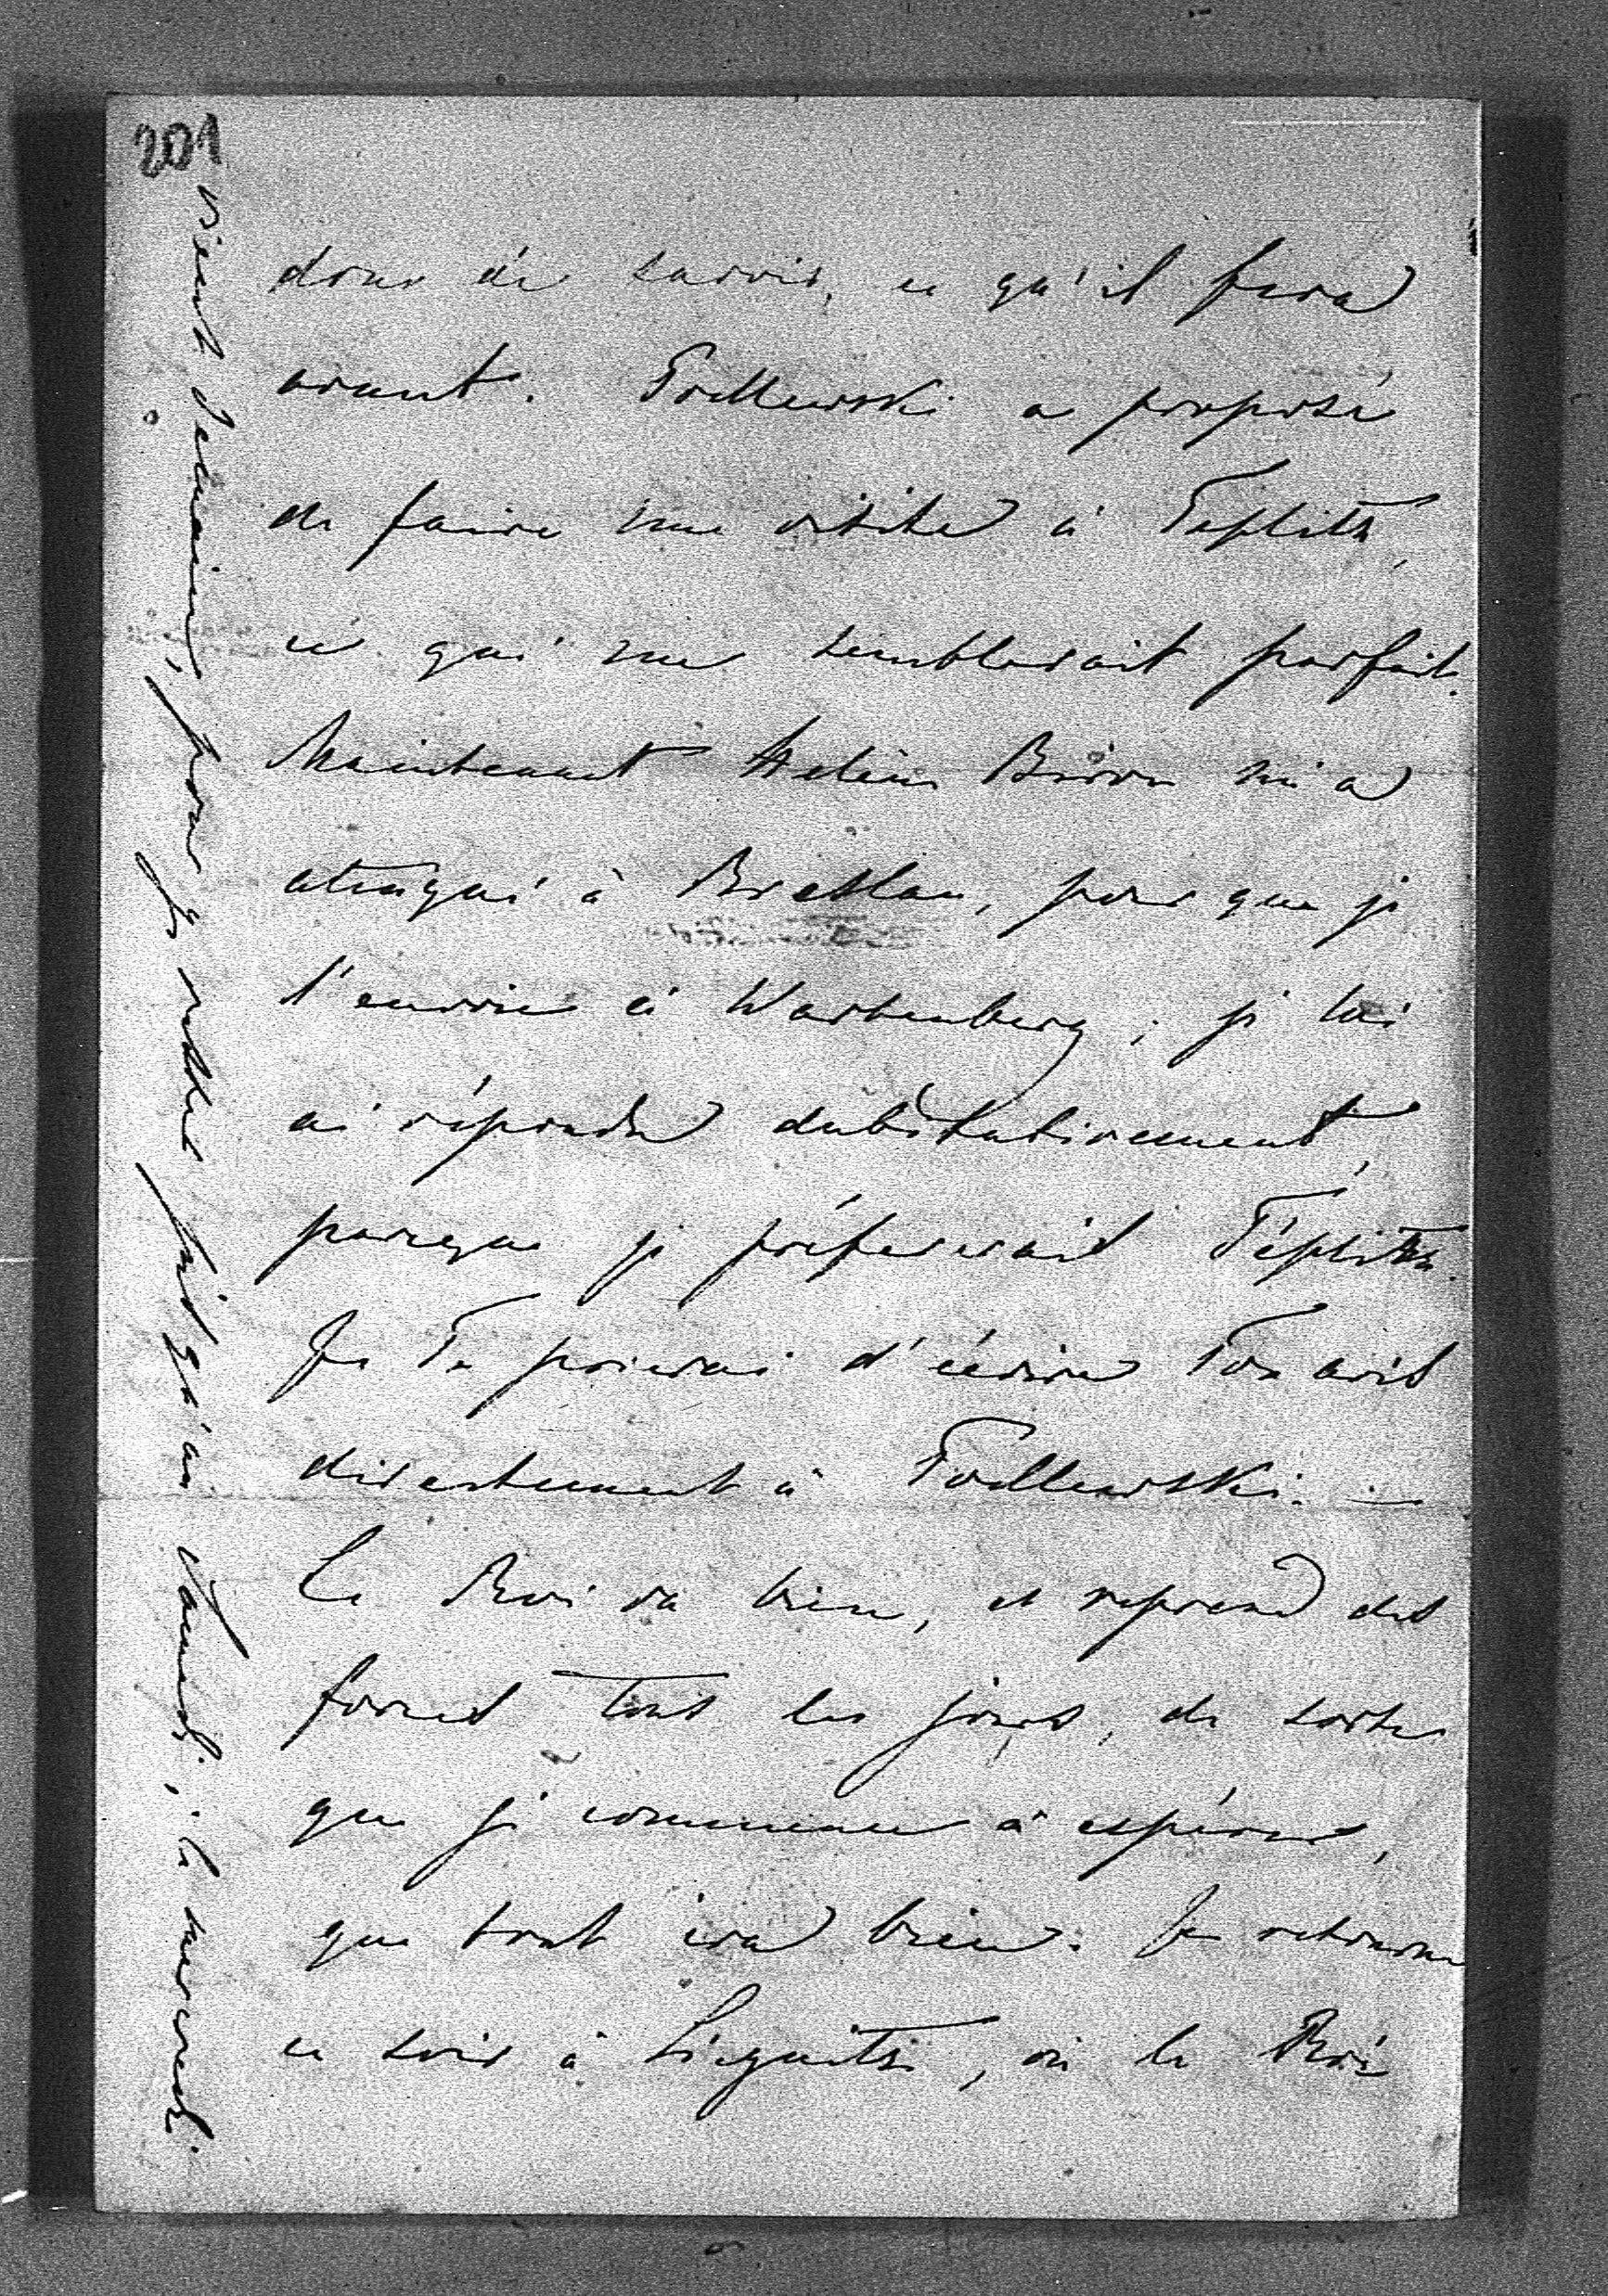 201
donc de savoir, ce qu'il fera
avant. Todlewski a proposé
de faire une visite à Teplitz,
ce qui me semblerait parfait.
Maintenant Biron m'a
à Breslau, pour que je
l'envoie à Wartenberg; je lui
ai répondu dubitativement,
parceque je préfererais Téplitz.
Je Te prierai d'écrire Ton avis
directement à Todlewski. —
Le Roi va bien, et reprend des
forces tous les jours, de sorte
que je commence à espérer,
que tout ira bien. Je retourne
ce soir à Liegnitz, où le Roi
vient demain, pour y rester jusqu'au samedi, le mercredi.